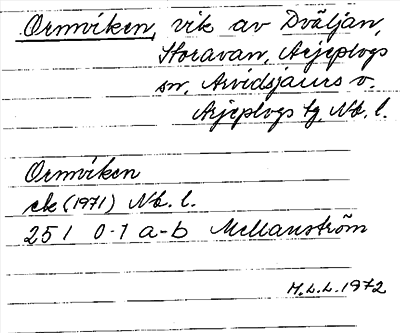 Ormviken, vik av Dväljan,
Storavan, Arjeplogs
sn, Arvidsjaurs o.
Arjeplogs tg, Nb. l.
Ormviken
ek (1971) Nb. l.
25 I 0-1 a-b Mellanström
H.L.L. 1972